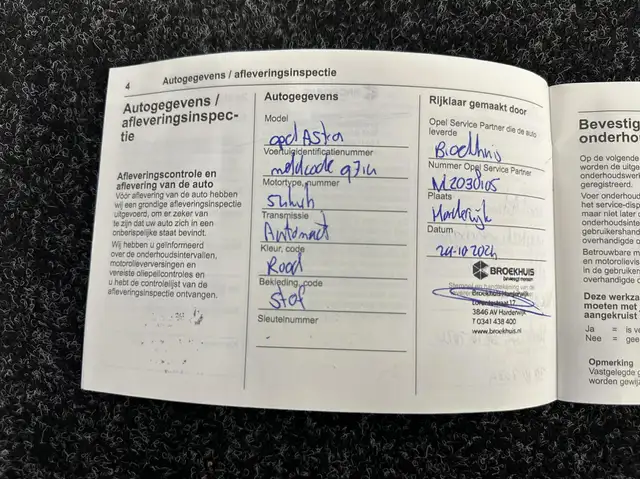 4 Autogegevens / afleveringsinspectie
Autogegevens /
afleveringsinspec-
tie
Afleveringscontrole en
aflevering van de auto
Vóór aflevering van de auto hebben
wij een grondige afleveringsinspectie
uitgevoerd, om er zeker van
te zijn dat uw auto zich in een
onberispelijke staat bevindt.
Wij hebben u geïnformeerd
over de onderhoudsintervallen,
motorolieverversingen en
vereiste oliepeilcontroles en
u hebt de controlelijst van de
afleveringsinspectie ontvangen.
Autogegevens
Model
opel Astra
Voertuigidentificatienummer
meldcode
Motortype, nummer
Transmissie
Automaat
Kleur, code
Rood
Bekleding, code
stof
Sleutelnummer
Rijklaar gemaakt door
Opel Service Partner die de auto
leverde
Broekhuis
Nummer Opel Service Partner
M2030105
Plaats
Harderwijk
Datum
BROEKHUIS
beweegt mensen
Broekhuis Harderwijk
Lorentzstraat 17
3846 AV Harderwijk
T 0341 438 400
www.broekhuis.nl
Bevestig
onderho
Op de volgende
worden de uitge
onderhoudswerk
geregistreerd.
Voer onderhoud
het service-disp
maar niet later d
onderhoudsinte
gebruikershand
overhandigde d
Betrouwbare m
en motorolievis
in de gebruiker
overhandigde d
Deze werkza
moeten met
aangekruist
Ja = is ve
Nee = gee
Opmerking
Vastgelegde g
worden gewijz